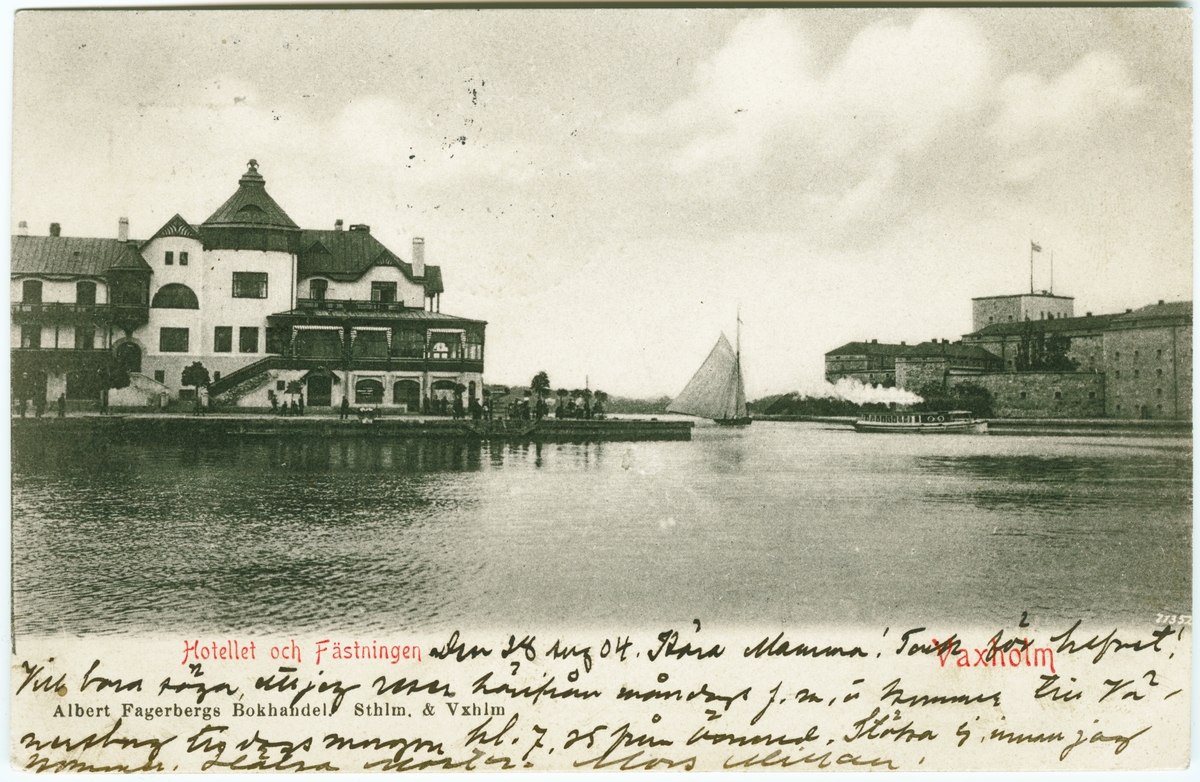 Hotellet och Fästningen Den 28 aug 04. Kära Mamma! Tack för brefvet!
Vaxholm
Vill bara säga, att jag reser härifrån måndag f. m. o kommer till Vä-
Albert Fagerbergs Bokhandel. Sthlm. & Vxhlm
nersborg tisdags morgon kl. 7,25 från Öxnered. Städa ej, innan jag
kommer. Hälsa Moster. Mors